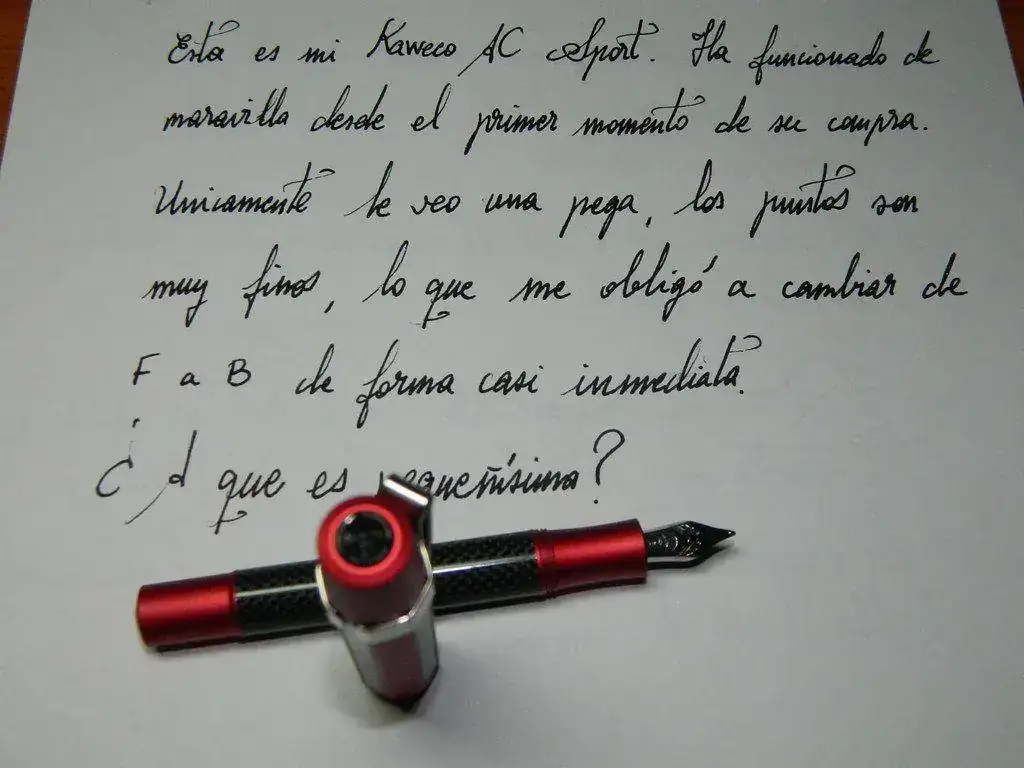 Esta es mi Kaweco AC Sport. Ha funcionado de
maravilla desde el primer momento de su compra.
Unicamente le veo una pega, los puntos son
muy finos, lo que me obligó a cambiar de
F a B de forma casi inmediata.
¿A que es pequeñísima?